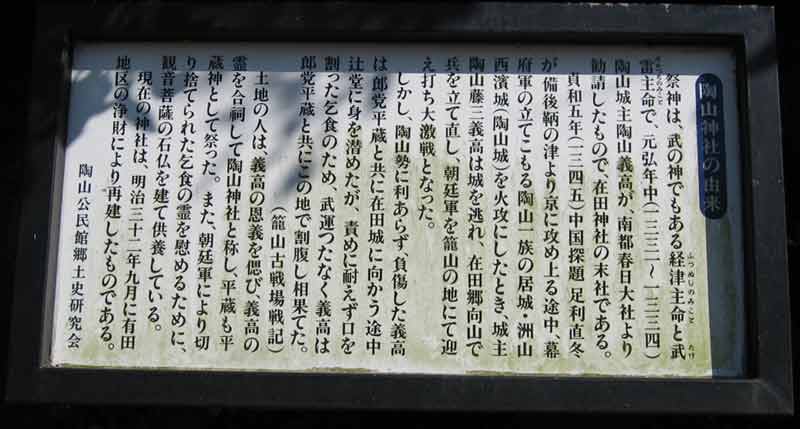 陶山神社の由来
祭神は、武の神でもある経津主命と武
ふつぬしのみこと
たけ
雷主命で、元弘年中(一三三一~一三三四)
陶山城主陶山義高が、南都春日大社より
勧請したもので、在田神社の末社である。
貞和五年(一三四五)中国探題 足利直冬
が備後鞆の津より京に攻め上る途中、幕
府軍の立てこもる陶山一族の居城・洲山
西濱城(陶山城)を火攻にしたとき、城主
陶山藤三義高は城を逃れ、在田郷向山で
兵を立て直し、朝廷軍を籠山の地にて迎
え打ち大激戦となった。
しかし、陶山勢に利あらず、負傷した義高
は郎党平蔵と共に在田城に向かう途中
辻堂に身を潜めたが、責めに耐えず口を
割った乞食のため、武運つたなく義高は
郎党平蔵と共にこの地で割腹し相果てた。
(籠山古戦場戦記)
土地の人は、義高の恩義を偲び、義高の
霊を合祠して陶山神社と称し、平蔵も平
蔵神として祭った。また、朝廷軍により切
り捨てられた乞食の霊を慰めるために、
観音菩薩の石仏を建て供養している。
現在の神社は、明治三十二年九月に有田
地区の浄財により再建したものである。
陶山公民館郷土史研究会